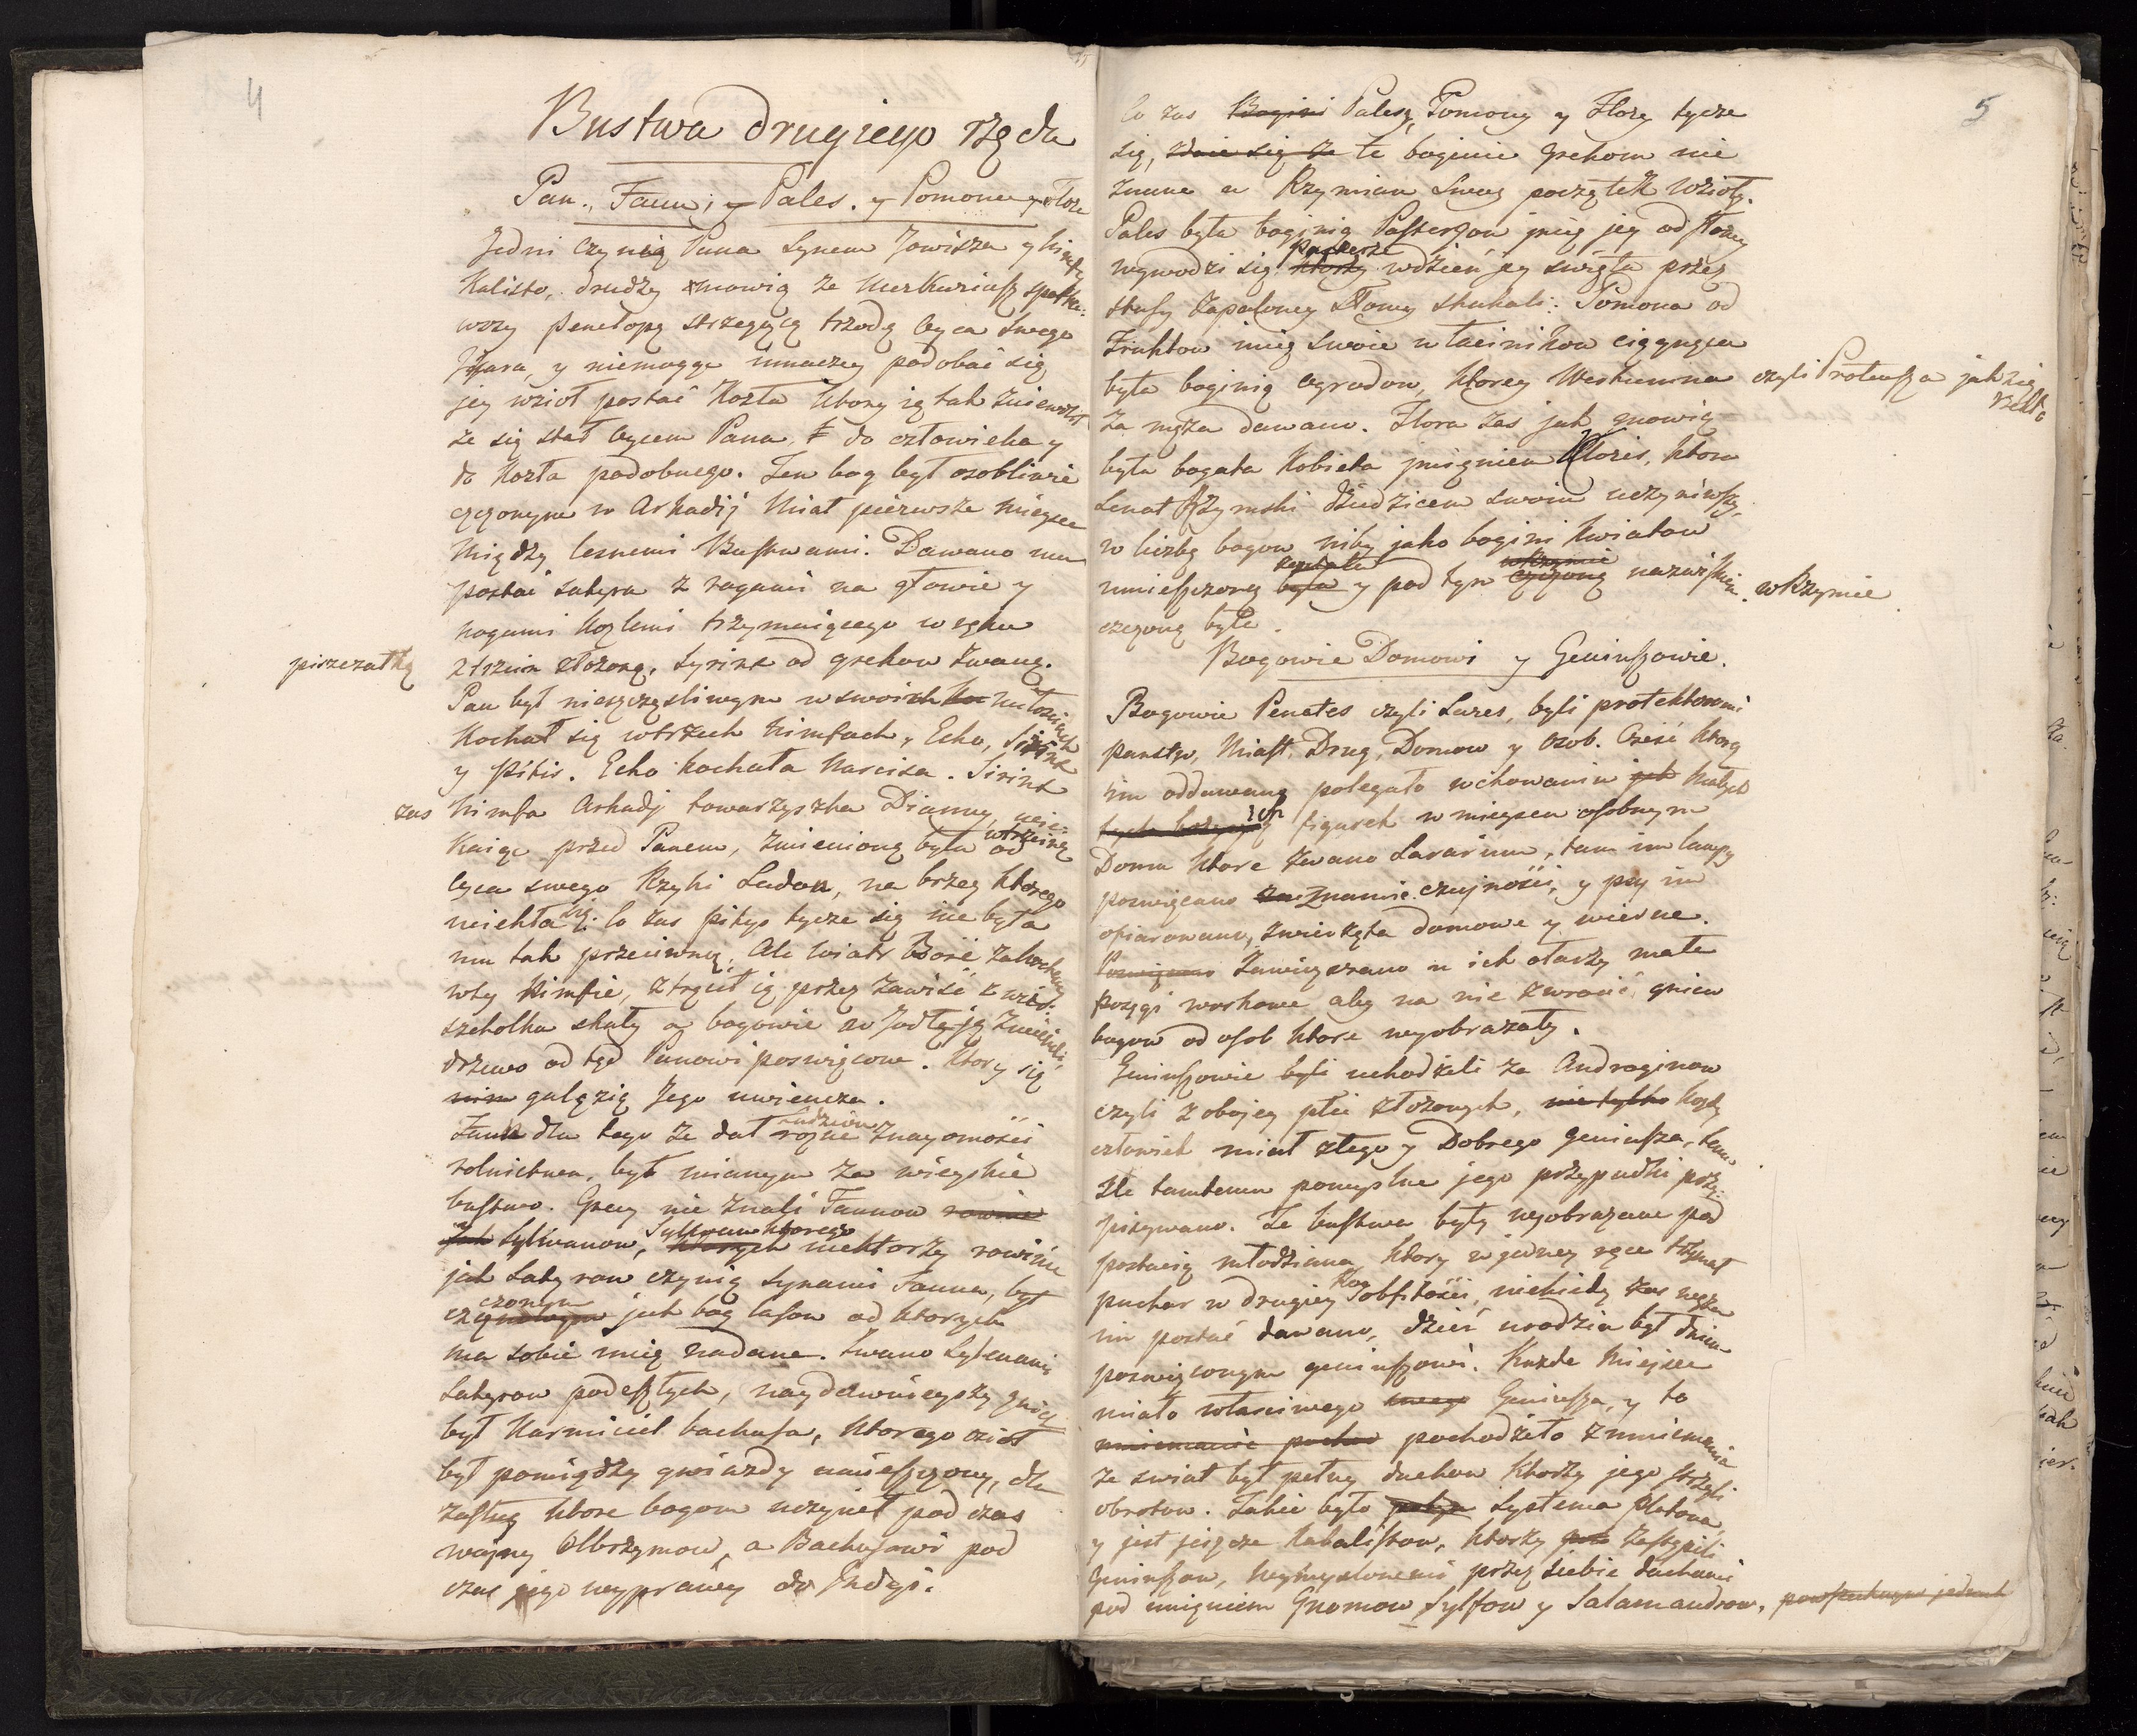 4
Bustwa drugiego rzędu
Pan., Faun, y Pales. y Pomona y Flora
Jedni czynią Pana Synem Jowisza y Nimfy
Kalisto, drudzy mowią że Merkuriusz spotka-
wszy Penelopę strzegącą trzodę oyca swego
Jkara, y niemogąc innaczey podobać się
jey wzioł postać Kozła ktory ią tak zniewolił
ze się stał oycem Pana, do człowieka y
do Kozła podobnego. Ten bog był osobliwie
czczonym w Arkadij Miał pierwsze mieysce
Między lesnemi Bustwami. Dawano mu
postać satyra z rogami na głowie y
nogami kozlemi trzymaiącego w ręku
piszczałkę
z trzcin złożoną, Syrinx od grekow zwaną.
Pan był nieszczęsliwym w swoich miłościach
Kochał się w trzech Nimfach, Echo, Sirinx
y Pitis. Echo kochała Narcisa. Sirinx
zas Nimfa Arkadij towarzyszka Dianny, ucie-
kaiąc przed Panem, zmienioną była w trzcinę od
oyca swego Rzyki Ladon, na brzeg ktorego
uciekła się. Co zas pitys tycze się nie była
mu tak przeciwną, Ale wiatr Boré zakochany
w tey Nimfie, ztrącił ią przez zawiść z wierz-
szchołka skały a bogowie w Jodłę ją zmienili,
drzewo od tąd Panowi poswięcone. Ktory się
nim gałęzią Jego uwiencza.
Faun dla tego ze dał ludziom rożne znayomości
rolnictwa, był mianym za wieyskie
bustwo. Grecy nie znali Faunow rownie
jak Sylwanow, Sylwan ktorego ktorych niektorzy rowinie
jak Satyrow czynią synami Fauna, był
czczonym jak bog lasow od ktorych
ma sobie imię nadane. Zwano Sylenami
Satyrow podeszłych, naydawnieyszy z nich
był Karmiciel bachusa, ktorego osioł
był pomiędzy gwiazdy umieszczony, dla
zasług ktore bogom uczynił pod czas
woyny Olbrzymow, a Bachusowi pod
czas jego wyprawy do Jndyi.
5
Co zas Bogini Palesy, Pomony y Flory tycze
się, zdaie się ze te boginie grekom nie
znane u Rzymian swoy początek wzioły.
Pales była boginią Pasterzow imię jey od słomy
wywodzi się pasterze ktorzy w dzień jey swięta przez
stusy zapaloney słomy skakali. Pomona od
Fruktow imię swoie u łacinikow ciągnąca
była boginią ogrodow, ktorey Wertumna czyli Proteusza jak się rzekło
za męża dawano. Flora zas jak mowią
była bogata Kobieta jmigniem Kloris, ktora
Senat Rzymski dziedzicem swoim uczyniwszy,
w liczbę bogow niby jako bogini Kwiatow
umieszczoną została była y pod tym w Rzymie czczoną nazwiskiem w Rzymie
czczoną była.
Bogowie Domowi y Geniuszowie.
Bogowie Penates czyli Lares, byli protektorami
panstw, Miast, Drog, Domow y osob. Cześć ktorą
im oddawano polegało w chowaniu jak małych
ich figurek w mieyscu osobnym
Domu ktore zwano Lararium, tam im lampy
poswięcano za znamie czujności, y psy im
ofiarowano, zwierzęta domowe y wierne.
Poswięcano Zawięzywano u ich ołarzy małe
posągi woskowe aby na nie zwrocić gniew
bogow od osob ktore wyobrażały.
Geniuszowie byli uchodzili za Androginow
czyli z obojey płci złożonych, nie tylko każdy
człowiek miał złego y Dobrego geniusza, temu
złe tamtemu pomyslne jego przypadki przy-
pisywano. Te bustwa były wyobrażane pod
postacią młodziana, ktory w jedney ręce trzymał
puchar w drugiey Rog obfitości, niekiedy zas węża
im postać dawano, dzień urodzin był dniem
poswięconym geniuszowi. Każde Miejsce
miało własciwego swego Geniusza, y to
mniemanie pocho pochodziło z mniemania
ze swiat był pełny duchow ktorzy jego strzegli
obrotow. Takie było Systema Platona,
y jest jeszcze Kabalistow, ktorzy zastąpili
Geniuszow, wymyslonemi przez siebie duchami
pod imigniem Gnomow Sylfow y Salamandrow, powszechnym jednak